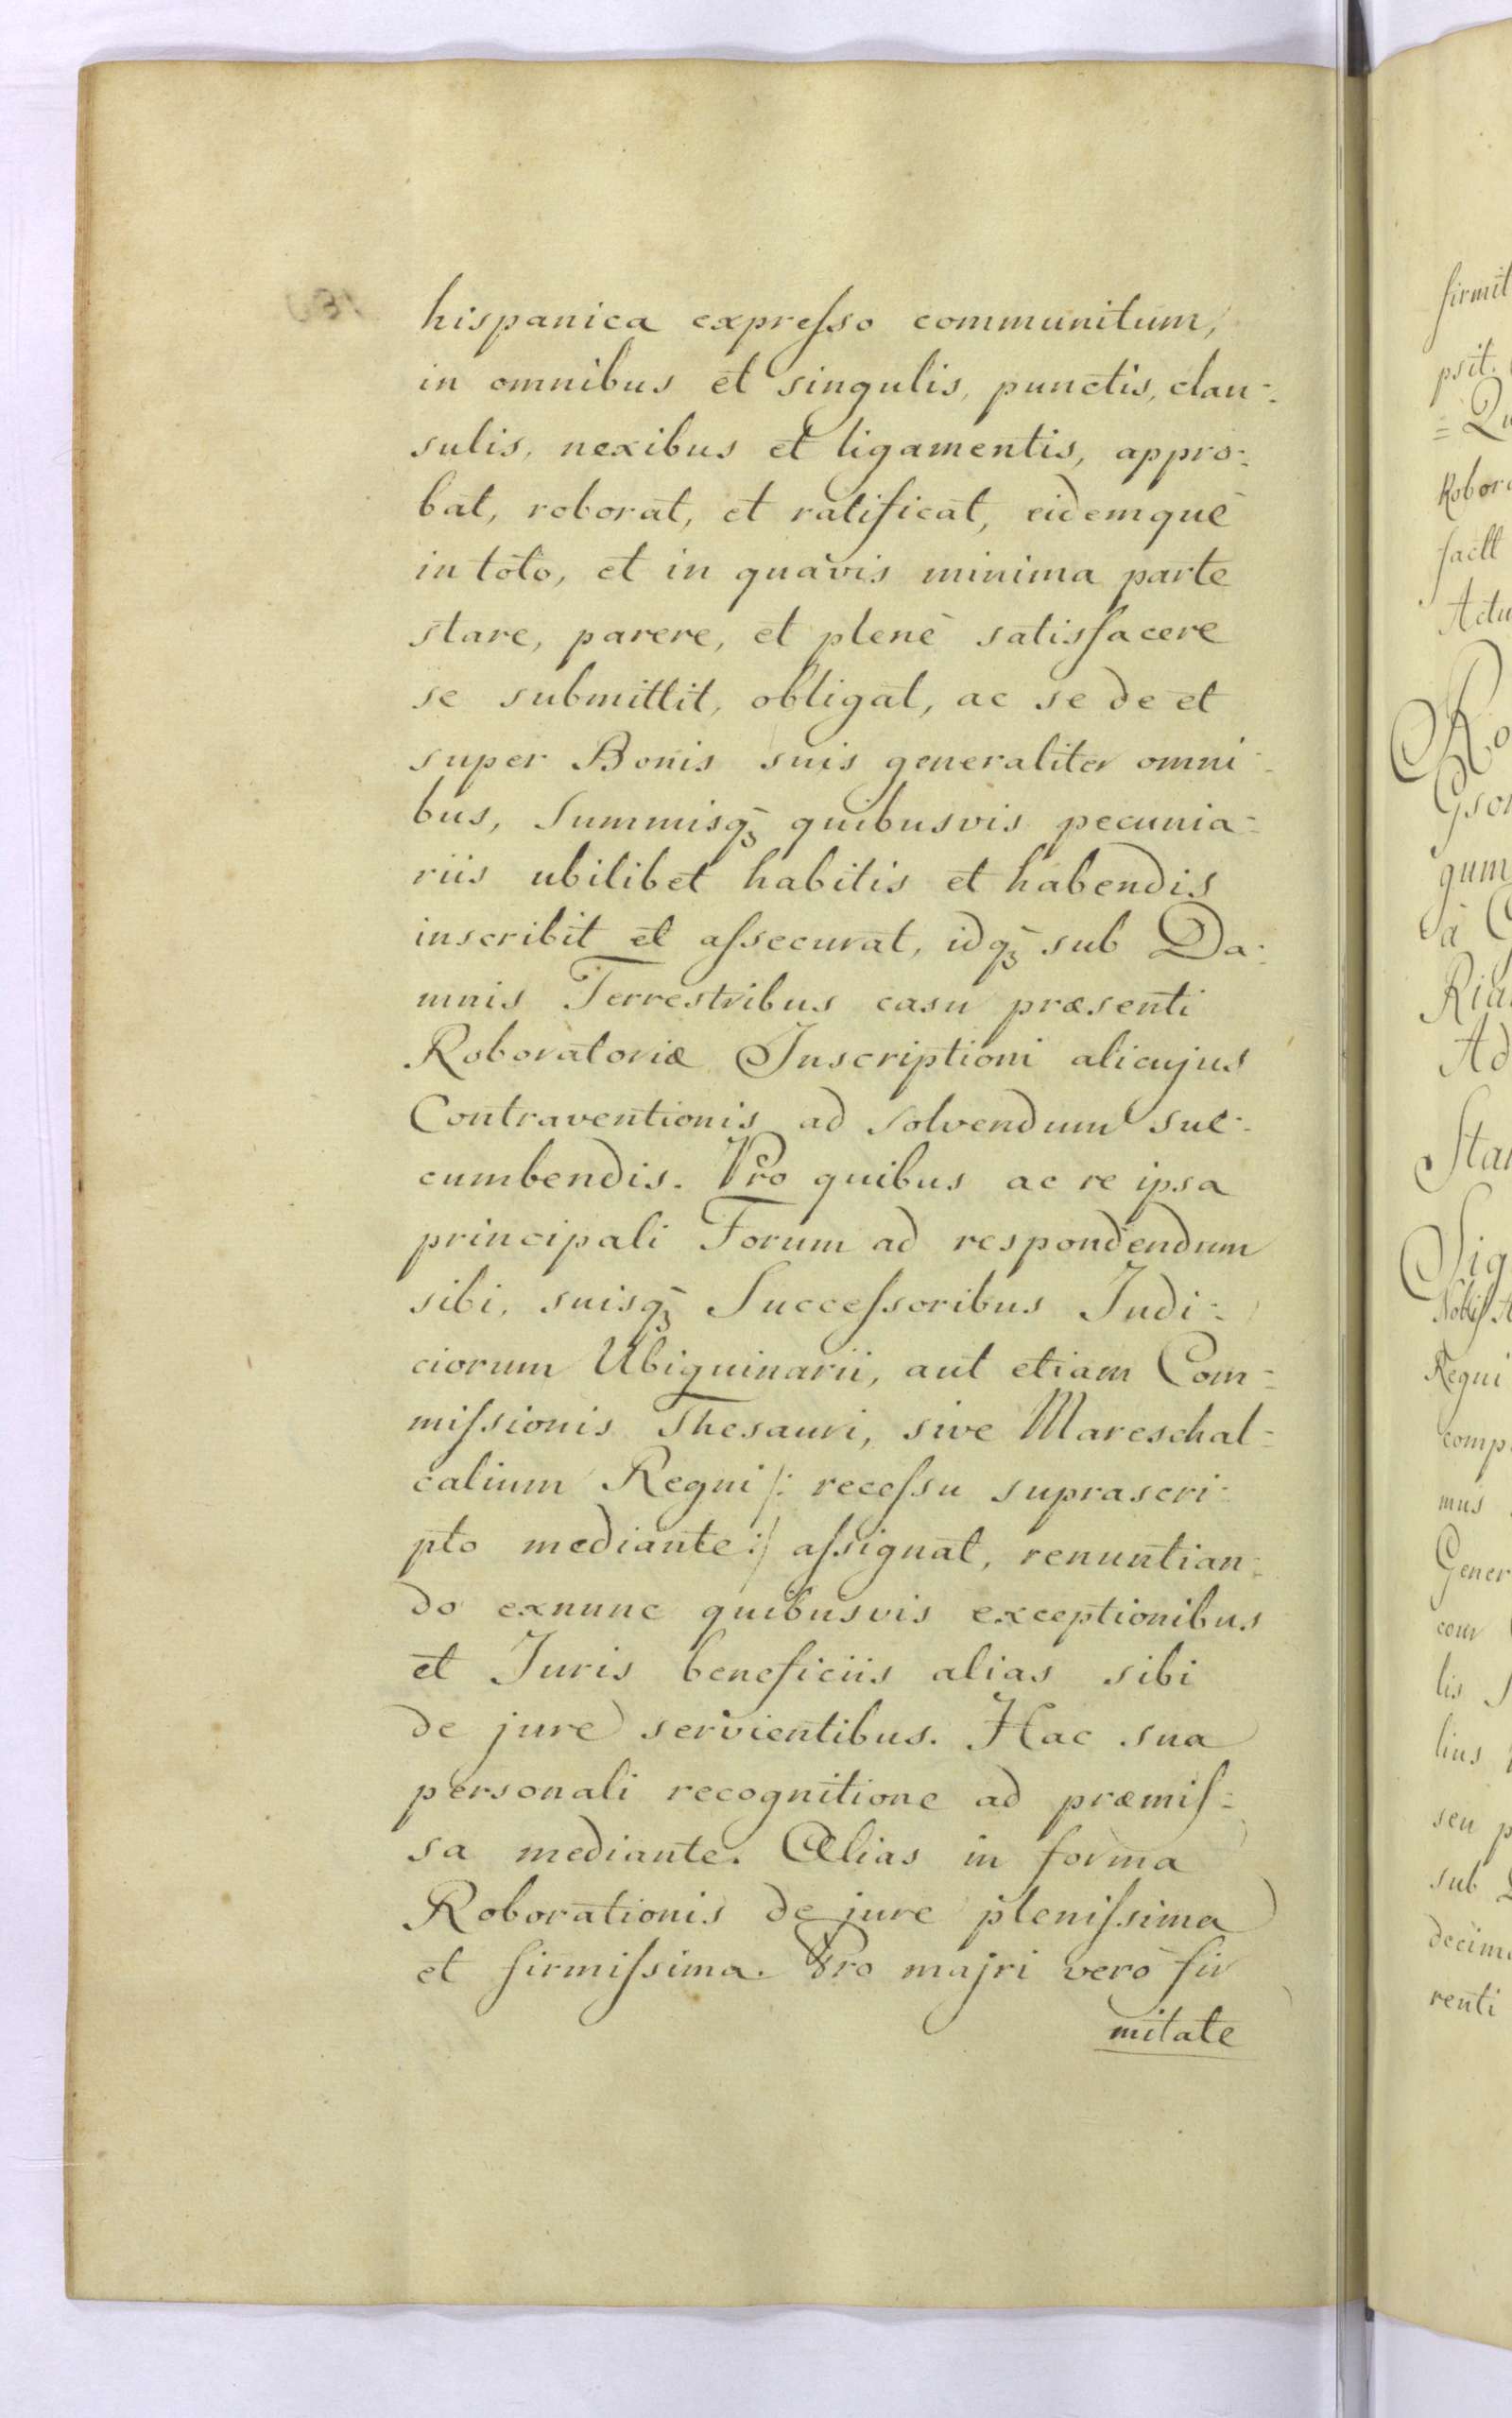 hispanica expreſso communitum,
in omnibus et singulis, punctis, clau-
sulis, nexibus et ligamentis, appro-
bat, roborat, et ratificat, eidemque
in toto, et in quavis minima parte
stare, parere, et plenè satisfacere
se submittit, obligat, ac se de et
super Bonis suis generaliter omni-
bus, Summisqꝫ quibusvis pecunia-
riis ubilibet habitis et habendis
inscribit et aſsecurat, idqꝫ sub Da-
mnis Terrestribus casu præsenti
Roboratoriæ Inscriptioni alicujus
Contraventionis ad solvendum suc-
cumbendis. Pro quibus ac re ipsa
principali Forum ad respondendum
sibi, suisqꝫ Succeſsoribus Judi-
ciorum Ubiquinarii, aut etiam Com-
miſsionis Thesauri, sive Mareschal-
calium Regni /: receſsu suprascri-
pto mediante :/ aſsignat, renuntian-
do exnunc quibusvis exceptionibus
et Juris beneficiis alias sibi
de jure servientibus. Hac sua
personali recognitione ad præmiſ-
sa mediante. Alias in forma
Roborationis de jure pleniſsima
et firmiſsima. Pro majri verò fir
mitate
firmit
psit.
= Qu
Robor
factt
Actu
Ro
gum
à
Ria
Ad
Sta
Sig
Regni
comp
mus
Gener
com
lis
lius
seu p
sub
decim
renti